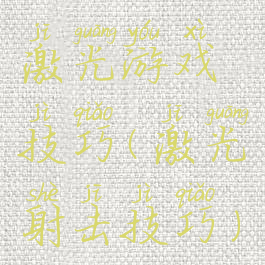 jī guāng yóu xì
激光游戏
jì qiǎo jī guāng
技巧(激光
shè jī jì qiǎo
射击技巧)